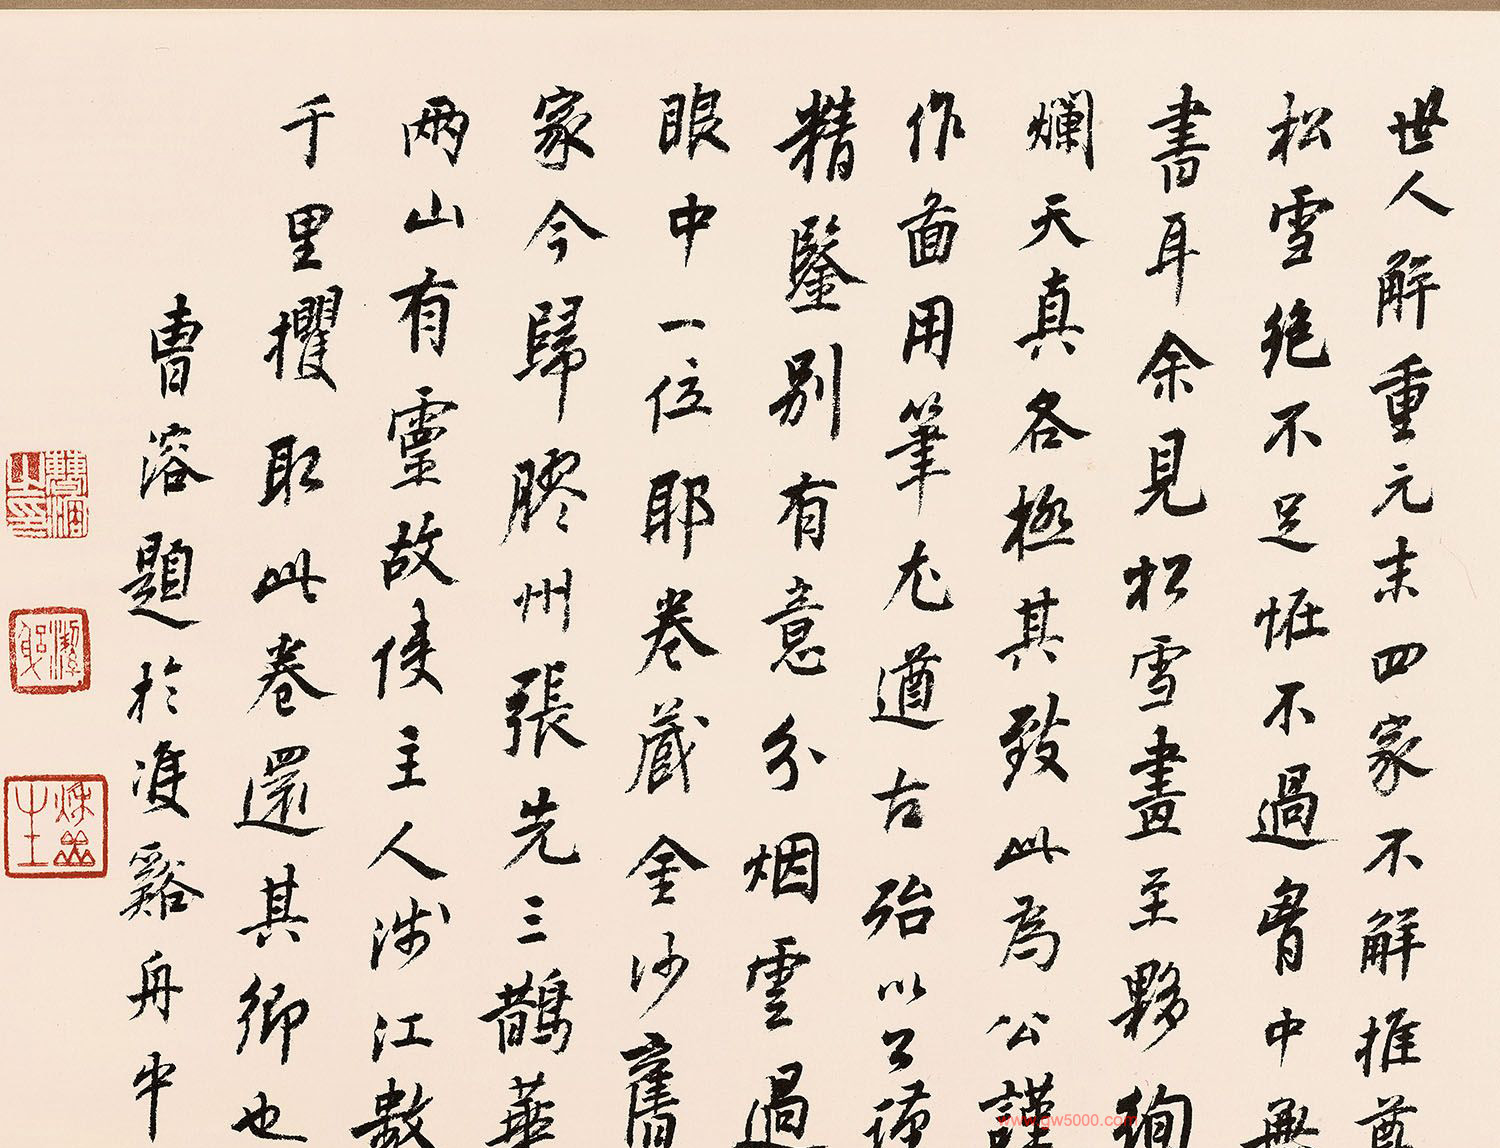 世人解重元末四家不解推尊
松雪絶不足恠不過胷中無
書耳余見松雪畫至夥絢
爛天真各極其致此為公謹
作啚用筆尤遒古殆以公謹
精鑒別有意分烟雲過
眼中一位耶卷藏金沙舊
家今歸膠州張先三鵲華
兩山有靈故使主人涉江數
千里攫取此卷還其鄉也
曹溶題於雙谿舟中
曹溶之印
潔躬
www.gw5000.com